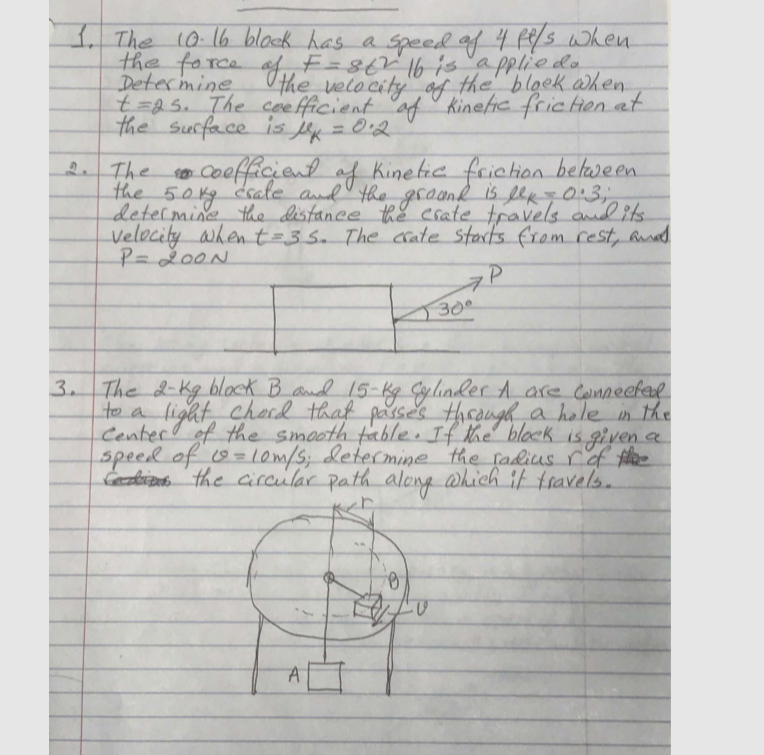 1. The 10-lb block has a speed of 4 ft/s when
the force of F = 8t² lb is applied.
Determine the velocity of the block when
t = 2 s. The coefficient of kinetic friction at
the surface is μk = 0.2
2. The coefficient of kinetic friction between
the 50 kg crate and the ground is μk = 0.3;
determine the distance the crate travels and its
velocity when t = 3 s. The crate starts from rest, and
P = 200N
P
30°
3. The 2-kg block B and 15-kg cylinder A are connected
to a light chord that passes through a hole in the
center of the smooth table. If the block is given a
speed of v = 10m/s; determine the radius r of
the circular path along which it travels.
r
B
v
A